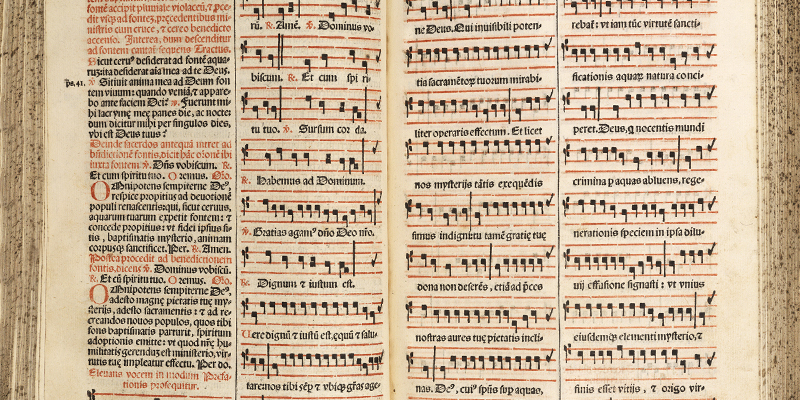 fonte accipit pluviale violaceū, ⁊ pce-
dit vsq̄ ad fontez, precedentibus mi-
nistris cum cruce, ⁊ cereo benedicto
accenso. Interea, dum descenditur
ad fontem cantat sequens Tractus.
Sicut ceruꝰ desiderat ad fontē aqua-
ruz:ita desiderat aīa mea ad te Deus.
ps. 41.
℣. Sitiuit anima mea ad Deum fon
tem viuum: quando veniā, ⁊ appare-
bo ante faciem Dei? ℣. Fuerunt mi-
hi lacrymę meę panes die, ac nocte:
dum dicitur mihi per singulos dies,
vbi est Deus tuus?
Deinde sacerdos antequā intret ad
bn̄dictionē fontis, dicit hāc orōnē ibi
iuxta fontem. ℣. Dn̄s vobiscum. ℟.
Et cum spiritu tuo. Oremus. Orō.
OMnipotens sempiterne Deꝰ,
respice propitius ad deuotionē
populi renascentis: qui, sicut ceruus,
aquarum tuarum expetit fontem: ⁊
concede propitius: vt fidei ipsius si-
tis, baptismatis mysterio, animam
corpusq̄ sanctificet. Per. ℟. Amen.
Postea procedit ad benedictionem
fontis, dicens ℣. Dominus vobiscū.
℟. Et cū spiritu tuo. Oremus. Orō.
OMnipotens sempiterne Deꝰ
adesto magnę pietatis tuę my-
sterijs, adesto sacramentis: ⁊ ad re-
creandos nouos populos, quos tibi
fons baptismatis parturit, spiritum
adoptionis emitte: vt quod nrē hu-
militatis gerendū est ministerio, vir-
tutis tuę impleatur effectu. Per do.
Eleuans vocem in modum Prefa-
tionis prosequitur.
rū. ℟. Amē. ℣. Dominus vo-
biscum. ℟. Et cum spi ri-
tu tuo. ℣. Sursum cor da.
℟. Habemus ad Dominum.
℣. Gratias agamꝰ dn̄o Deo nr̄o.
℟. Dignum ⁊ iustum est.
Uere dignū ⁊ iustū est, equū ⁊ salu-
tare: nos tibi sēp ⁊ vbiq̄ grās age-
ne Deus, Qui inuisibili poten-
tia sacramētoꝝ tuorum mirabi-
liter operaris effectum. Et licet
nos mysterijs tātis exequēdis
simus indigni: tu tamē gratię tuę
dona non deserēs, etiā ad p̄ces
nostras aures tuę pietatis incli-
nas. Deꝰ, cuiꝰ spūs sup aquas,
rebat: vt iam tūc virtutē sancti-
ficationis aquaꝝ natura conci-
peret. Deus, q̄ nocentis mundi
crimina p aquas abluens, rege-
nerationis speciem in ipsa dilu-
uij effusione signasti: vt vnius
eiusdemq̄ elementi mysterio, ⁊
finis esset vitijs, ⁊ origo vir-